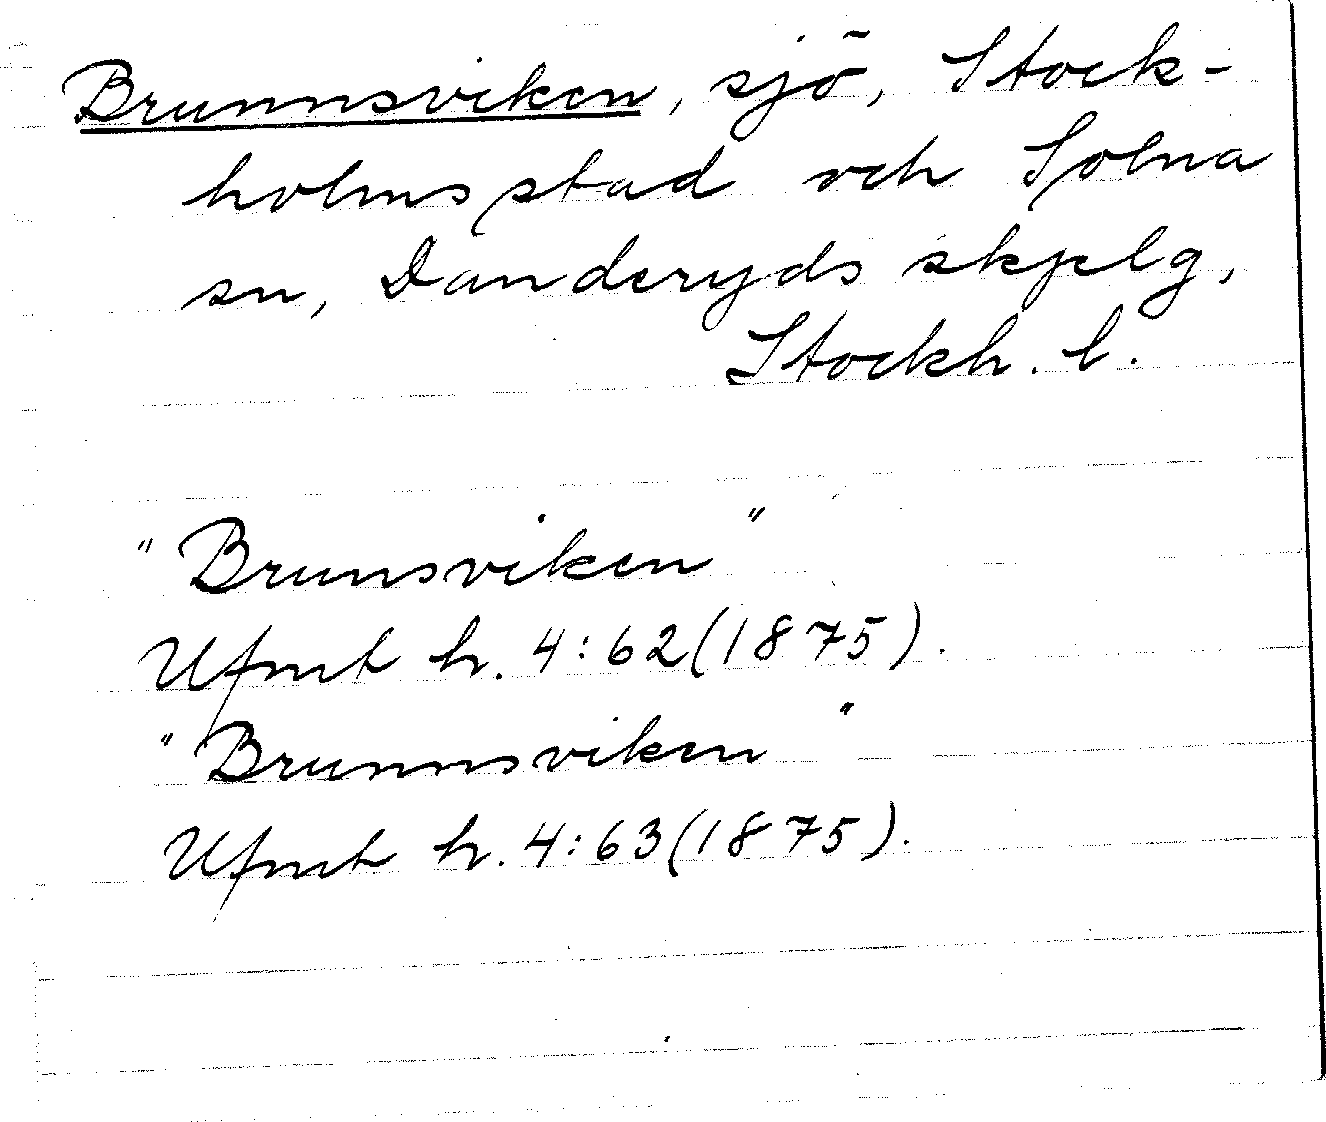 Brunnsviken, sjö, Stock-
holms stad och Solna
sn, Danderyds skplg,
Stockh. l.
"Brunsviken"
Ufmt h. 4:62(1875).
"Brunnsviken"
Ufmt h. 4:63(1875).